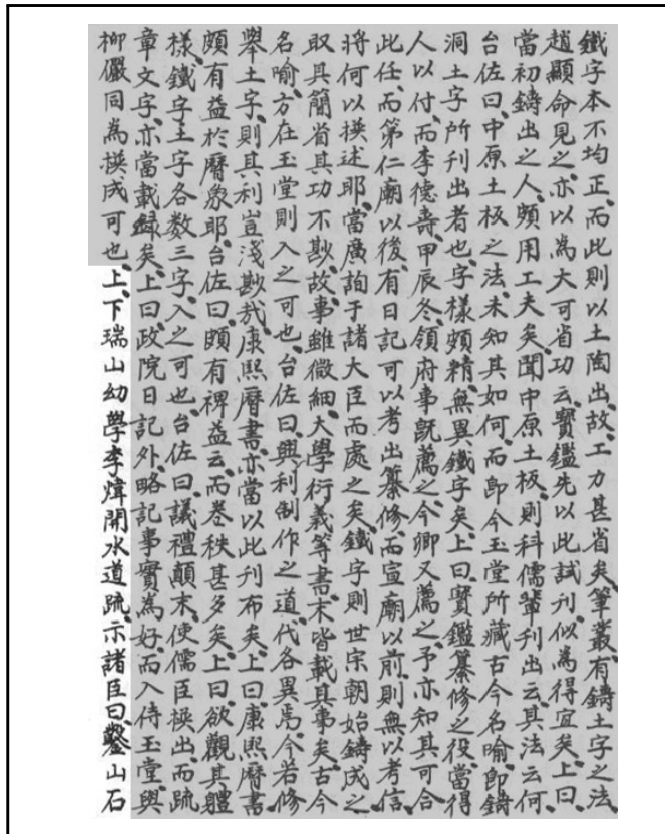 鐵字本不均正、而此則以土陶出、故工力甚省矣、筆叢有鑄土字之法
趙顯命見之、亦以為大可省功云、寶鑑先以此試刊、似為得宜矣、上曰、
當初鑄出之人、頗用工夫矣、聞中原土板、則科儒輩刊出云、其法云何
台佐曰、中原土板之法、未知其如何、而卽今玉堂所藏古今名喻、卽鑄
洞土字所刊出者也、字樣頗精、無異鐵字矣、上曰、寶鑑纂修之役、當得
人以付、而李德壽、甲辰冬、領府事旣薦之、今卿又薦之、予亦知其可合
此任、而第仁廟以後、有日記可以考出纂修、而宣廟以前、則無以考信
將何以撰述耶、當廣詢于諸大臣而處之矣、鐵字則世宗朝始鑄成之
取具簡省、其功不尠、故事雖微細、大學衍義等書末、皆載其事矣、古今
名喻、方在玉堂則入之可也、台佐曰、興利制作之道、代各異焉、今若修
擧土字、則其利豈淺尠哉、康熙曆書、亦當以此刊布矣、上曰、康熙曆書
頗有益於曆象耶、台佐曰、頗有裨益云、而卷秩甚多矣、上曰、欲觀其軆
樣、鐵字土字各數三字、入之可也、台佐曰、議禮顚末、使儒臣撰出、而疏
章文字、亦當載錄矣、上曰、政院日記外、略記事實為好、而入侍玉堂與
柳儼同為撰成可也、上、下瑞山幼學李煒開水道疏、示諸臣曰、鑿山石